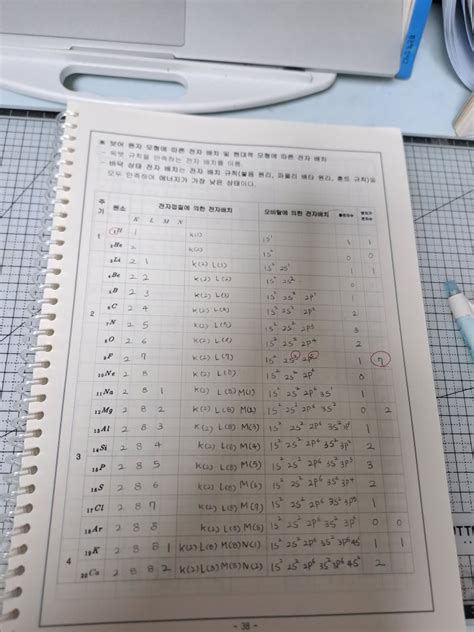 ※ 보어 원자 모형에 따른 전자 배치 및 현대적 모형에 따른 전자 배치
- 옥텟 규칙을 만족하는 전자 배치를 이룸.
- 바닥 상태 전자 배치는 전자 배치 규칙(쌓음 원리, 파울리 배타 원리, 훈트 규칙)을
모두 만족하여 에너지가 가장 낮은 상태이다.
주기 원소 전자껍질에 의한 전자배치 오비탈에 의한 전자배치
K L M N
1 1H 1 K(1) 1S¹ 1 1
2He 2 1S² 0
2 3Li 2 1 K(2) L(1) 1S² 2S¹ 1 1
4Be 2 2 K(2) L(2) 1S² 2S² 0
5B 2 3 K(2) L(3) 1S² 2S² 2P¹ 1
6C 2 4 K(2) L(4) 1S² 2S² 2P² 2
7N 2 5 K(2) L(5) 1S² 2S² 2P³ 3
8O 2 6 K(2) L(6) 1S² 2S² 2P⁴ 2
9F 2 7 K(2) L(7) 1S² 2S² 1 7
10Ne 2 8 K(2) L(8) 1S² 2S² 2P⁶ 0
3 11Na 2 8 1 K(2) L(8) M(1) 1S² 2S² 2P⁶ 3S¹ 1 1
12Mg 2 8 2 K(2) L(8) M(2) 1S² 2S² 2P⁶ 3S² 0 2
13Al 2 8 3 K(2) L(8) M(3) 1S² 2S² 2P⁶ 3S² 3P¹ 1
14Si 2 8 4 K(2) L(8) M(4) 1S² 2S² 2P⁶ 3S² 3P² 2
15P 2 8 5 K(2) L(8) M(5) 1S² 2S² 2P⁶ 3S² 3P³ 3
16S 2 8 6 K(2) L(8) M(6) 1S² 2S² 2P⁶ 3S² 3P⁴ 2
17Cl 2 8 7 K(2) L(8) M(7) 1S² 2S² 2P⁶ 3S² 3P⁵ 1
18Ar 2 8 8 K(2) L(8) M(8) 1S² 2S² 2P⁶ 3S² 3P⁶ 0 0
4 19K 2 8 8 1 K(2) L(8) M(8) N(1) 1S² 2S² 2P⁶ 3S² 3P⁶ 4S¹ 1 1
20Ca 2 8 8 2 K(2) L(8) M(8) N(2) 1S² 2S² 2P⁶ 3S² 3P⁶ 4S²
- 38 -